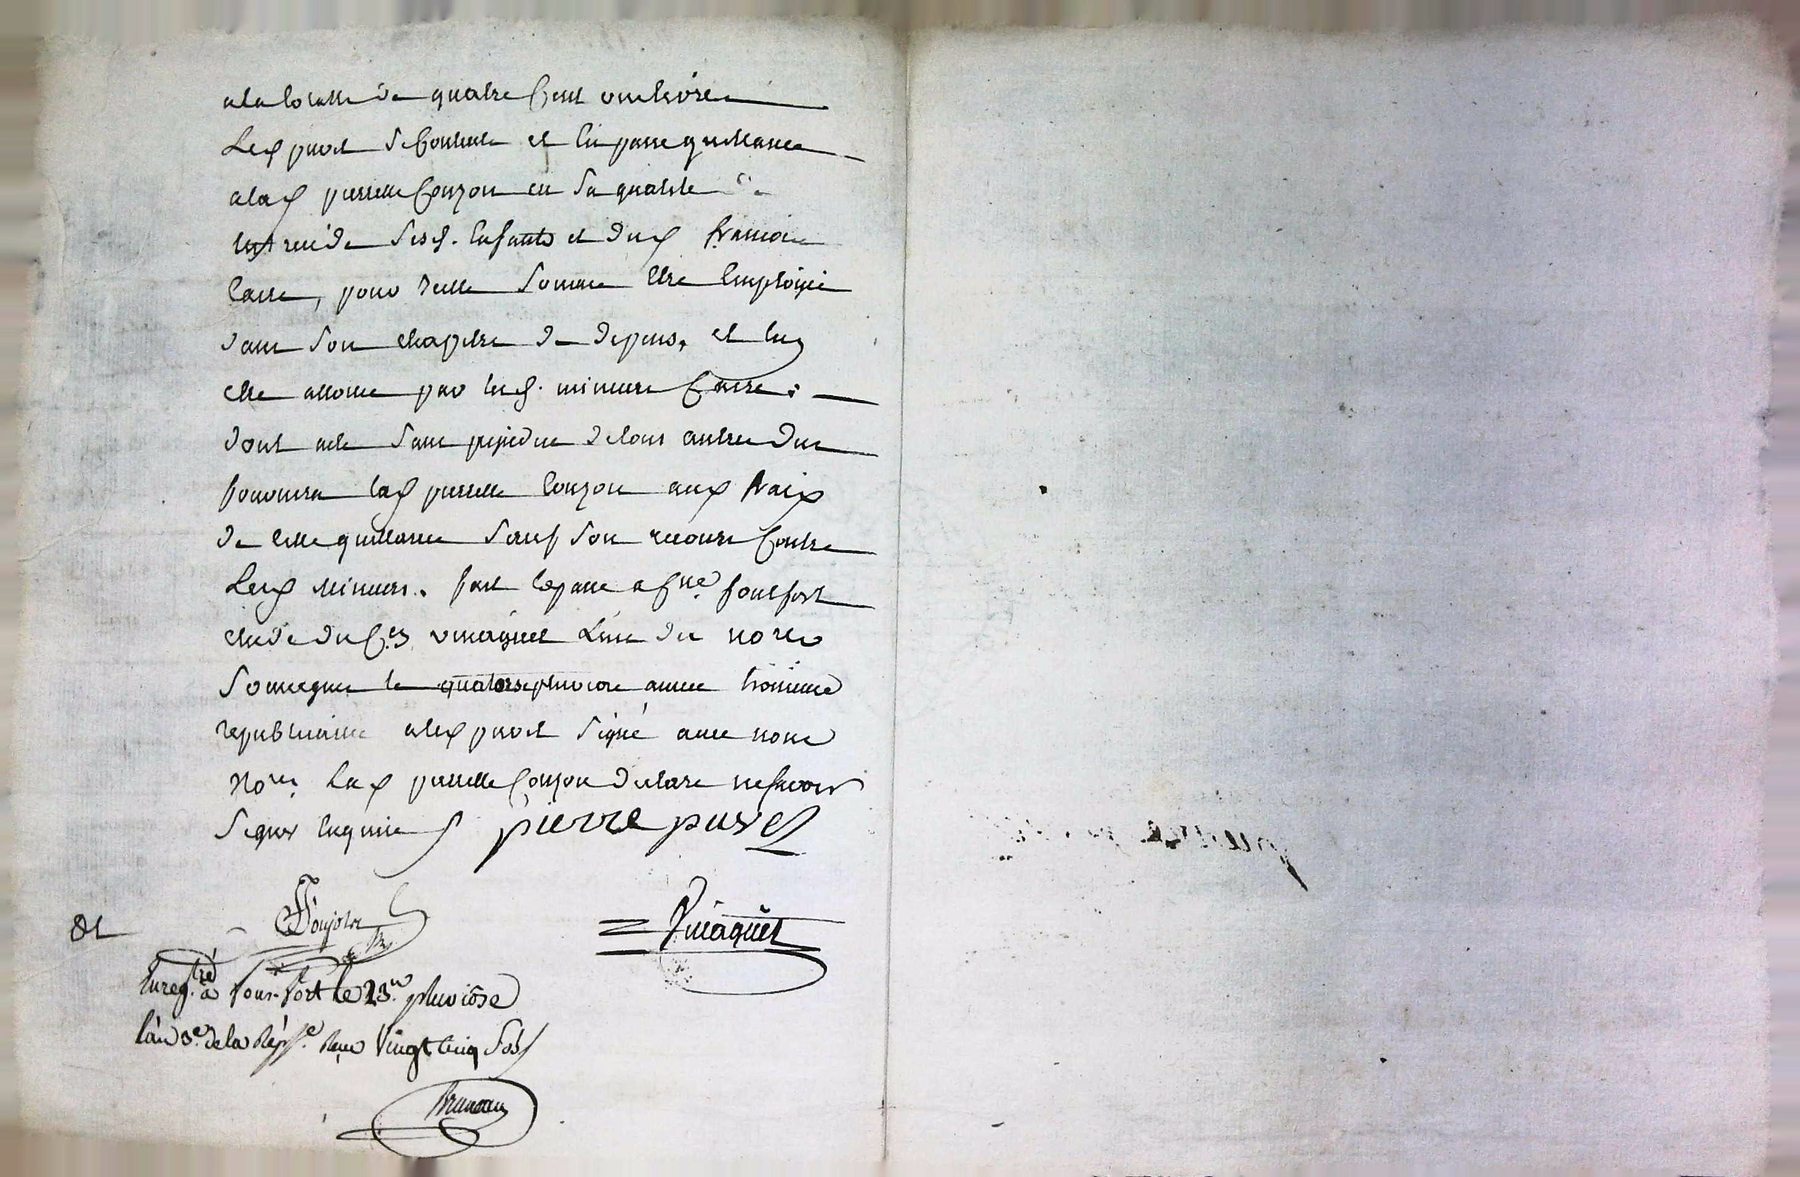 a la totalle de quatre cent onze livres
Led. puvel se contente et en passe quittance
a lad. pierrette Couzon en sa qualité de
tutrice de sesd. enfants et dud. francois
Carre, pour ditte somme être employée
dans son chapitre de depens, et luy
etre allouée par lesd. mineurs Carre;
dont acte sans prejudice de tous autres dus
fournira lad. pierrette Couzon aux fraix
de cette quittance sauf son recours contre
Lesd. mineurs. fait et passé a fonfort
etude du C.en vinaguet L'un des no.res
soussignes le quatorze pluviose année troisieme
republicaine a led. puvel signé avec nous
No.res La d. pierrette Couzon declare ne savoir
signer enquise
pierre puvel
Vinaguet
Enreg.tré a Fonfort le 23.e pluviôse
l'an 3.e de la Rép.e Reçu Vingt cinq sols
Bruneau